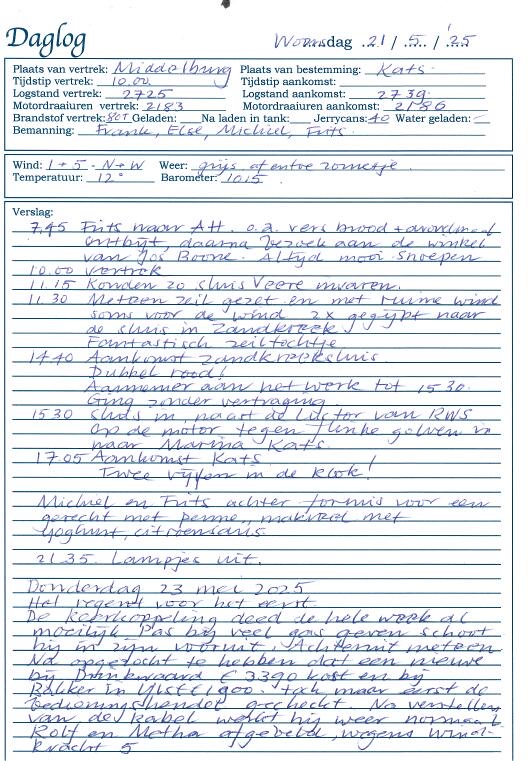 Daglog
Woensdag 21 / 5 / '25
Plaats van vertrek: Middelburg Plaats van bestemming: Kats
Tijdstip vertrek: 10.00 Tijdstip aankomst:
Logstand vertrek: 2725 Logstand aankomst: 2739
Motordraaiuren vertrek: 2183 Motordraaiuren aankomst: 2186
Brandstof vertrek: 80l Geladen: Na laden in tank: Jerrycans: 40 Water geladen: -
Bemanning: Frank, Else, Michiel, Frits.
Wind: 1 + 5 - N + W Weer: grijs af en toe zonnetje.
Temperatuur: 12° Barometer: 1015
Verslag:
7.45 Frits naar AH. o.a. vers brood + avondmaal
ontbijt, daarna bezoek aan de winkel
van Jos Boone. Altijd mooi snoepen
10.00 vertrek
11.15 Konden zo sluis Veere invaren.
11.30 Meteen zeil gezet en met ruime wind
soms voor de wind 2x gegijpt naar
de sluis in Zandkreek.
Fantastisch zeiltochtje
14.40 Aankomst Zandkreeksluis.
Dubbel rood!
Aannemer aan het werk tot 15.30.
Ging zonder vertraging.
15.30 Sluis in, naast de Lictor van RWS
Op de motor tegen flinke golven in
naar Marina Kats.
17.05 Aankomst Kats
Twee vijfen in de klok!
Michiel en Frits achter fornuis voor een
gerecht met penne, makreel met
Yoghurt, citroensaus
21.35. Lampjes uit.
Donderdag 23 mei 2025
Het regent voor het eerst
De keerkoppeling deed de hele week al
moeilijk Pas bij veel gas geven schoot
hij in zijn vooruit. Achteruit meteen
Na opgezocht te hebben dat een nieuwe
bij Drinkwaard € 3390 kost en bij
Bakker in IJlst € 1900. toch maar eerst de
bedieningshendel gecheckt. Na verstellen
van de kabel werkt hij weer normaal.
Rolf en Metha afgebeld, wegens wind-
kracht 5